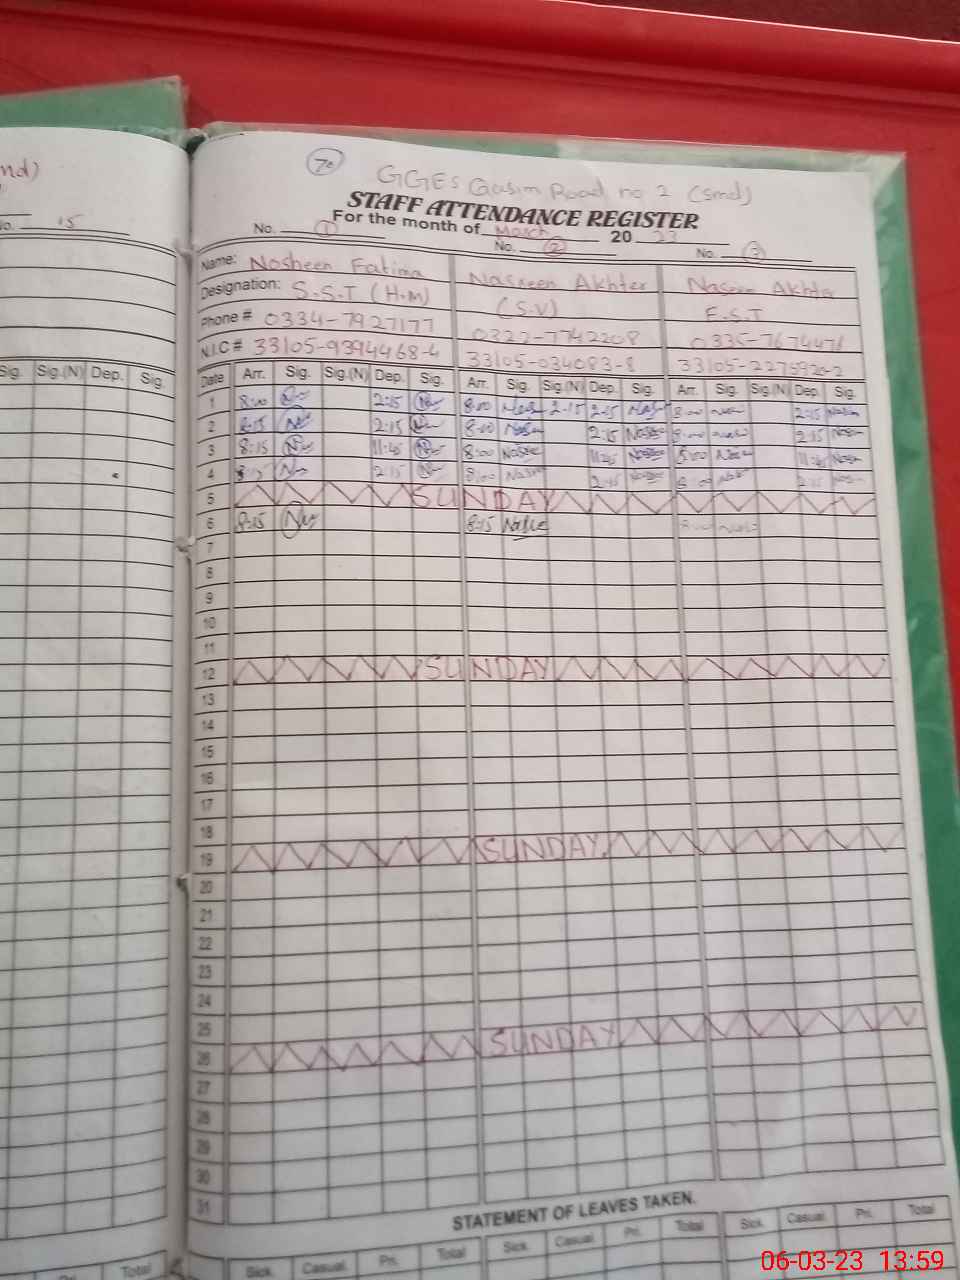 nd)
No. 15
Sig. Sig.(N) Dep. Sig.
Total
7e
GGES Qasim Road no 2 (Smd)
STAFF ATTENDANCE REGISTER
For the month of March 20 23
No. 1 No. 2 No. 3
Name: Nosheen Fatima Nasreen Akhter Naseem Akhter
Designation: S.S.T (H.M) (S.V) E.S.T
Phone # 0334-7927177 0322-7742208 0335-7674476
N.I.C # 33105-9394468-4 33105-034083-8
Date Arr. Sig. Sig.(N) Dep. Sig. Arr. Sig. Sig.(N) Dep. Sig. Arr. Sig. Sig.(N) Dep. Sig.
1 8:00 2:15 8:00 2-15 2:15 8:00 2:15
2 8:15 2:15 8:00 2:15 8:00 2:15
3 8:15 11:45 8:00 11:45 8:00 11:45
4 8:15 2:15 8:00 2:15 8:00 2:15
5 SUNDAY
6 8:15 8:15 8:00
7
8
9
10
11
12 SUNDAY
13
14
15
16
17
18
19 SUNDAY
20
21
22
23
24
25
26 SUNDAY
27
28
29
30
31
STATEMENT OF LEAVES TAKEN.
Sick Casual Pri. Total Sick Casual Pri. Total Sick Casual Pri. Total
06-03-23 13:59